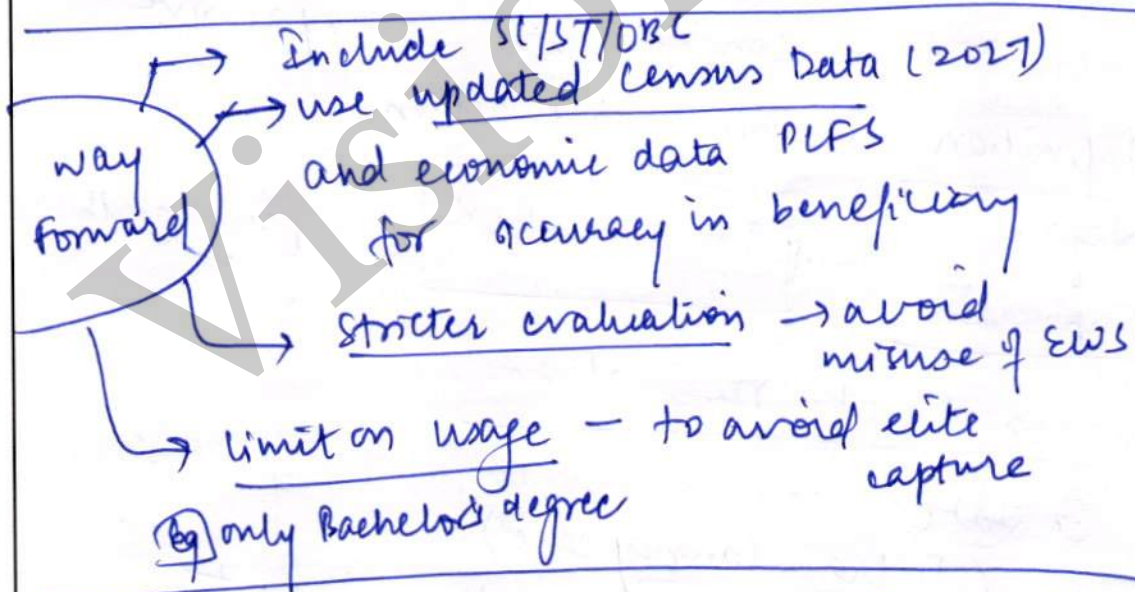 → Include SC/ST/OBC
→ use updated Census Data (2027)
way
Forward
and economic data PLFS
for accuracy in beneficiary
→ Stricter evaluation → avoid
misuse of EWS
→ limit on usage — to avoid elite
capture
Eg only Bachelor's degree
Vision